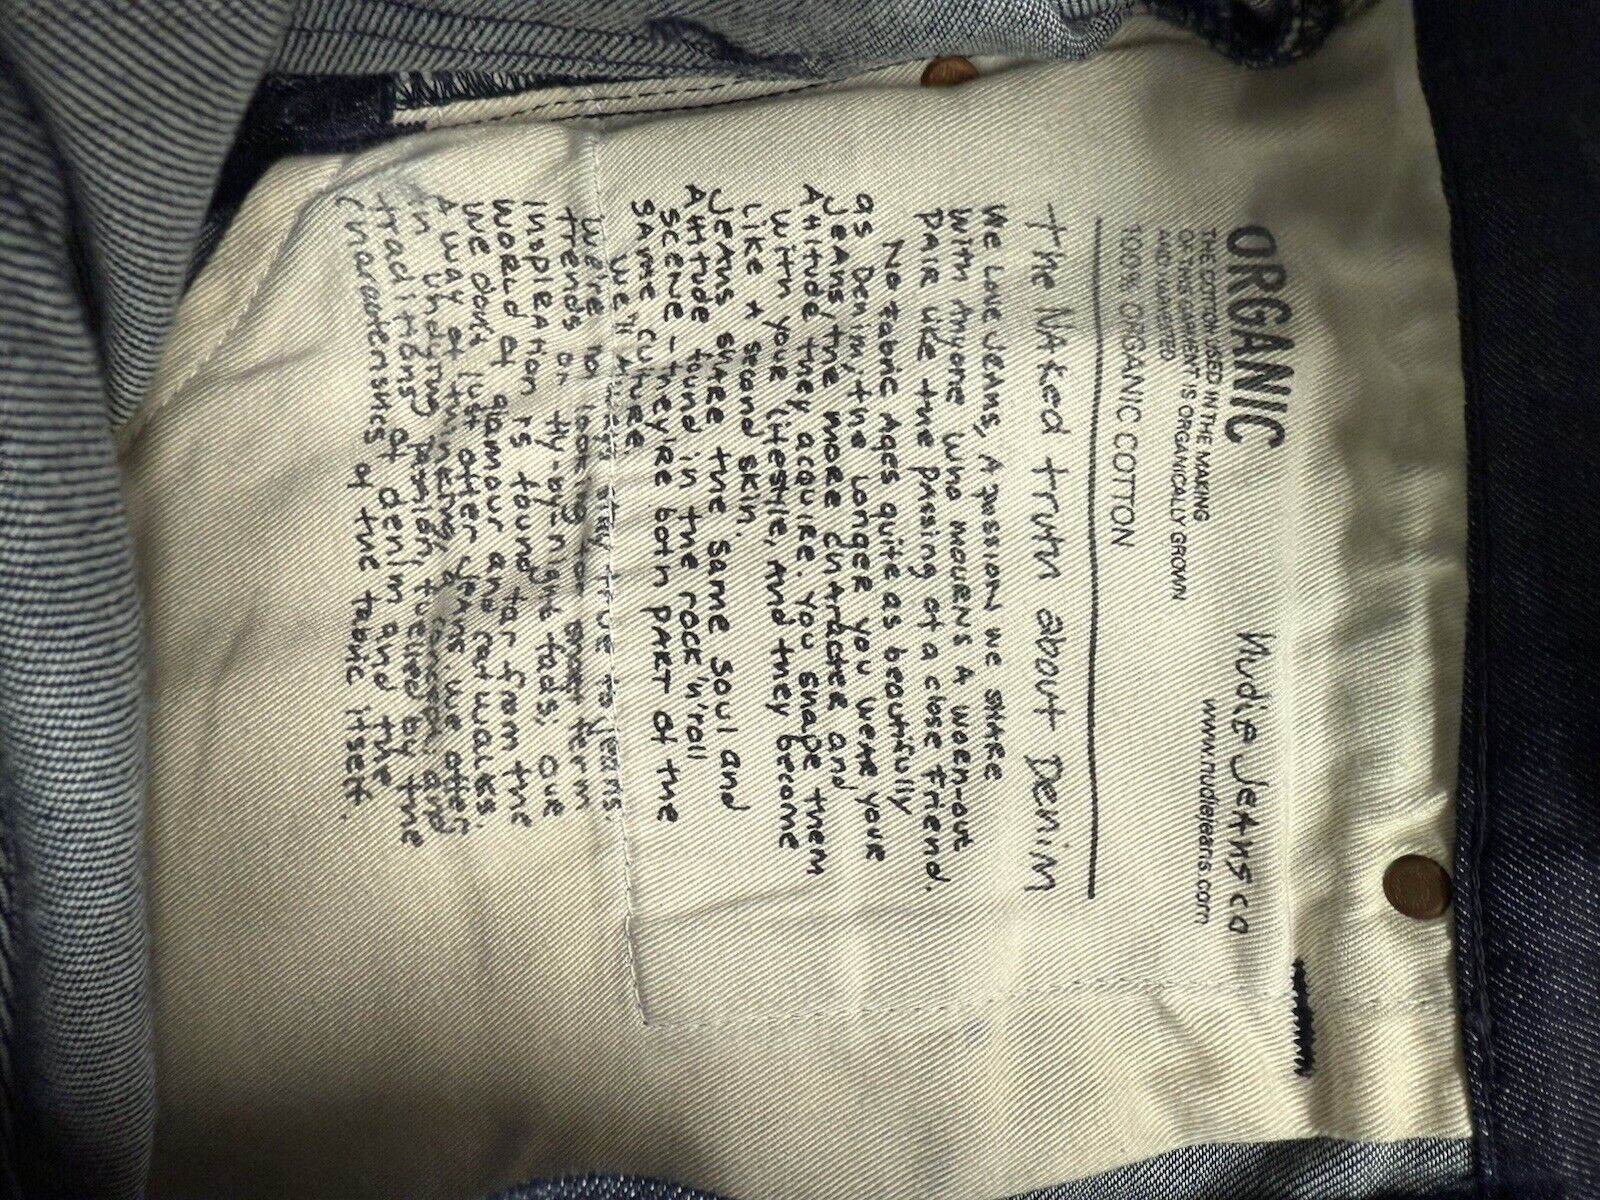 ORGANIC
Nudie Jeans co
THE COTTON USED IN THE MAKING
OF THIS GARMENT IS ORGANICALLY GROWN
AND HARVESTED
www.nudiejeans.com
100% ORGANIC COTTON
The Naked truth about Denim
We love jeans, A passion we share
with Anyone who mourns A worn-out
pair like the passing of a close friend.
No fabric Ages quite as beautifully
as Denim, the longer you wear your
Jeans, the more character and
Attitude they acquire. You shape them
with your lifestyle, And they become
like A second skin.
Jeans share the same soul and
Attitude found in the rock'n'roll
scene – they're both part of the
same culture.
We'll always stay true to jeans.
We're not looking for short term
trends or fly-by-night fads; our
inspiration is found far from the
world of glamour and catwalks.
We don't just offer jeans. we offer
A way of thinking, a concept and
an undying passion, fueled by the
traditions of denim and the
characteristics of the fabric itself.